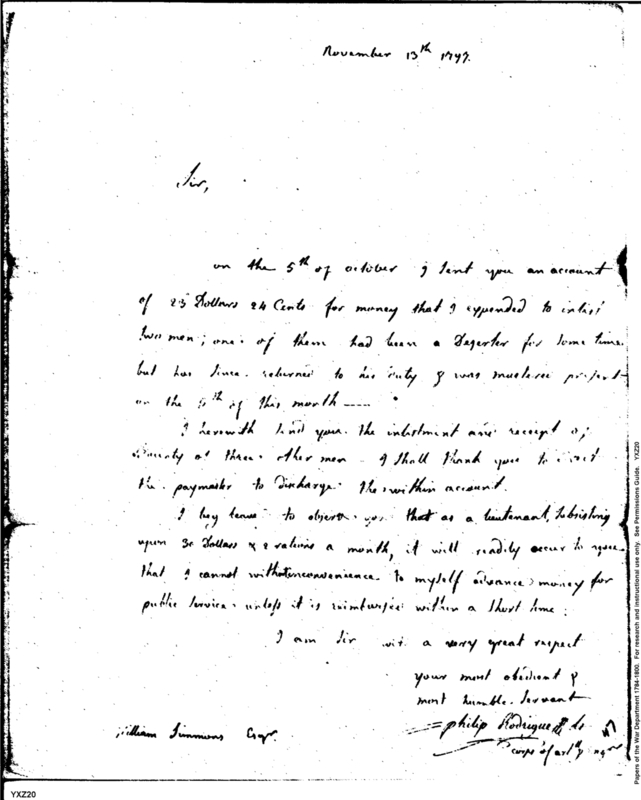 November 13th 1797.
Sir,
on the 5th of october I sent you an account
of 23 Dollars 24 Cents for money that I expended to inlist
two men; one of them had been a Deserter for some time
but has since returned to his duty & was mustered present
on the 5th of this month ----
I herewith send you the inlistment and receipt of
Bounty of three other men - I shall thank you to
the paymaster to discharge the within account.
I beg leave to observe you that as a lieutenant, subsisting
upon 30 Dollars & 2 rations a month, it will readily occur to you
that I cannot without inconvenience to myself advance money for
public service unless it is reimbursed within a short time.
I am Sir with a very great respect
your most obedient &
most humble Servant
philip Rodrigue Lt
corps of artly
William Simmons Esqr.
YXZ20
Papers of the War Department 1784-1800. For research and instructional use only. See Permissions Guide. YXZ20